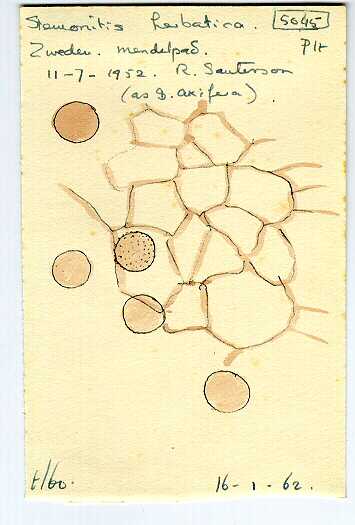 Stemonitis herbatica. 5045
Zweden. Mendelpad. Plt
11-7-1952. R. Santesson
(as S. axifera).
t/60. 16-1-62.